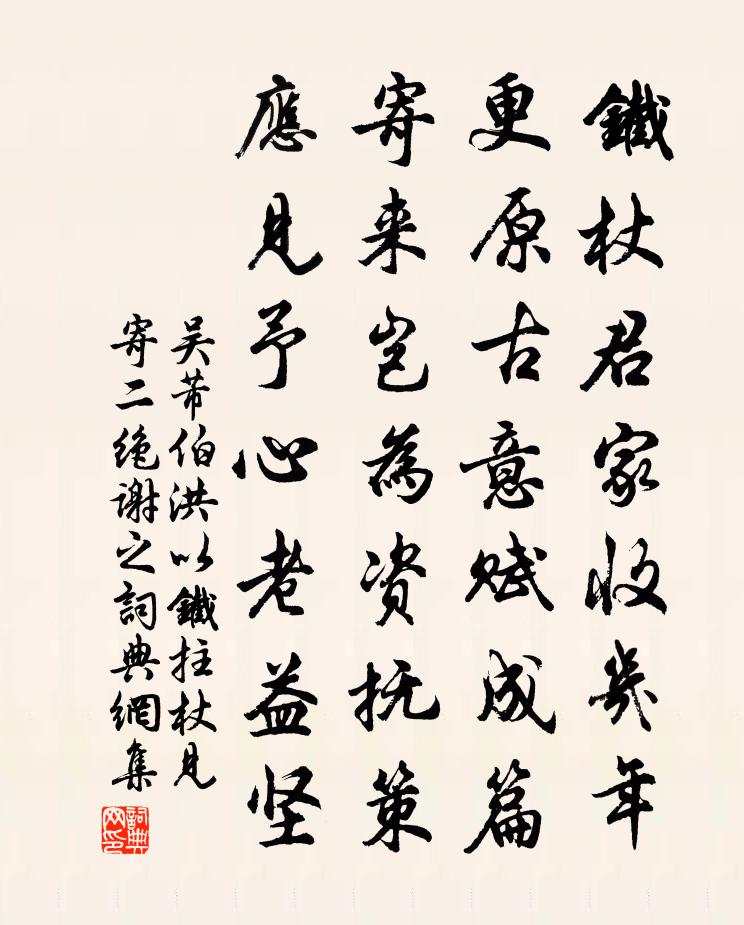 鐵杖君家收幾年
更原古意賦成篇
寄来豈為資抚策
應見予心老益坚
吴芾伯洪以鐵拄杖見
寄二绝謝之詞典網集
詞典
网印